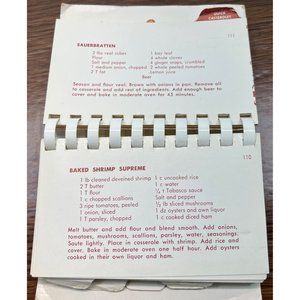 QUICK
CASSEROLES
111
SAUERBRATTEN
2 lbs veal cubes 1 bay leaf
Flour 4 whole cloves
Salt and pepper 4 ginger snaps, crumbled
1 medium onion, chopped 2 whole peeled tomatoes
2 T fat Lemon juice
Beer
Season and flour veal. Brown with onions in pan. Remove all
to casserole and add rest of ingredients. Add enough beer to
cover and bake in moderate oven for 45 minutes.
110
BAKED SHRIMP SUPREME
1 lb cleaned deveined shrimp 1 c uncooked rice
2 T butter 1 c water
1 T flour ¼ t Tabasco sauce
1 c chopped scallions Salt and pepper
3 ripe tomatoes, peeled ½ lb sliced mushrooms
1 onion, sliced 1 dz oysters and own liquor
1 T parsley, chopped 1 c cooked diced ham
Melt butter and add flour and blend smooth. Add onions,
tomatoes, mushrooms, scallions, parsley, water, seasonings.
Saute lightly. Place in casserole with shrimp. Add rice and
cover. Bake in moderate oven one half hour. Add oysters
cooked in their own liquor and ham.